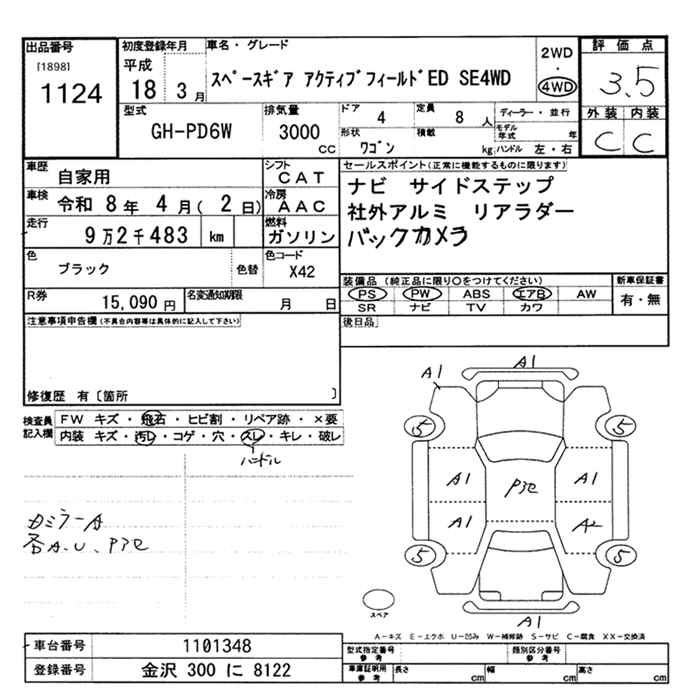 出品番号
[1898]
1124
初度登録年月
平成
18 3月
車名・グレード
スペースギア アクティブフィールドED SE4WD
2WD
・
4WD
評価点
3.5
外装 内装
C C
型式
GH-PD6W
排気量
3000
cc
ドア
4
定員
8人
ディーラー・並行
モデル年式 年
形状
ワゴン
積載
kg
ハンドル 左・右
車歴
自家用
シフト
CAT
セールスポイント(正常に機能するものに限ります)
ナビ サイドステップ
社外アルミ リアラダー
バックカメラ
車検
令和 8年 4月( 2日)
冷房
AAC
走行
9万2千483 km
燃料
ガソリン
色
ブラック
色替
色コード
X42
装備品(純正品に限り○をつけてください)
PS PW ABS エアB AW
SR ナビ TV カワ
新車保証書
有・無
R券
15,090円
名変通知期限
月 日
後日品
注意事項申告欄(不具合内容等は具体的に記入して下さい)
修復歴 有〔箇所 〕
検査員記入欄
FW キズ・飛石・ヒビ割・リペア跡・×要
内装 キズ・汚レ・コゲ・穴・スレ・キレ・破レ
ハンドル
カミラーA
各A.U、P3セ
A1
A1
5
5
A1
A1
P3セ
A1
A2
5
5
A1
スペア
A-キズ E-エクボ U-凹み W-補修跡 S-サビ C-腐食 XX-交換済
車台番号
1101348
登録番号
金沢 300 に 8122
型式指定番号
参考
類別区分番号
参考
車庫証明用
参考
長さ cm
幅 cm
高さ cm